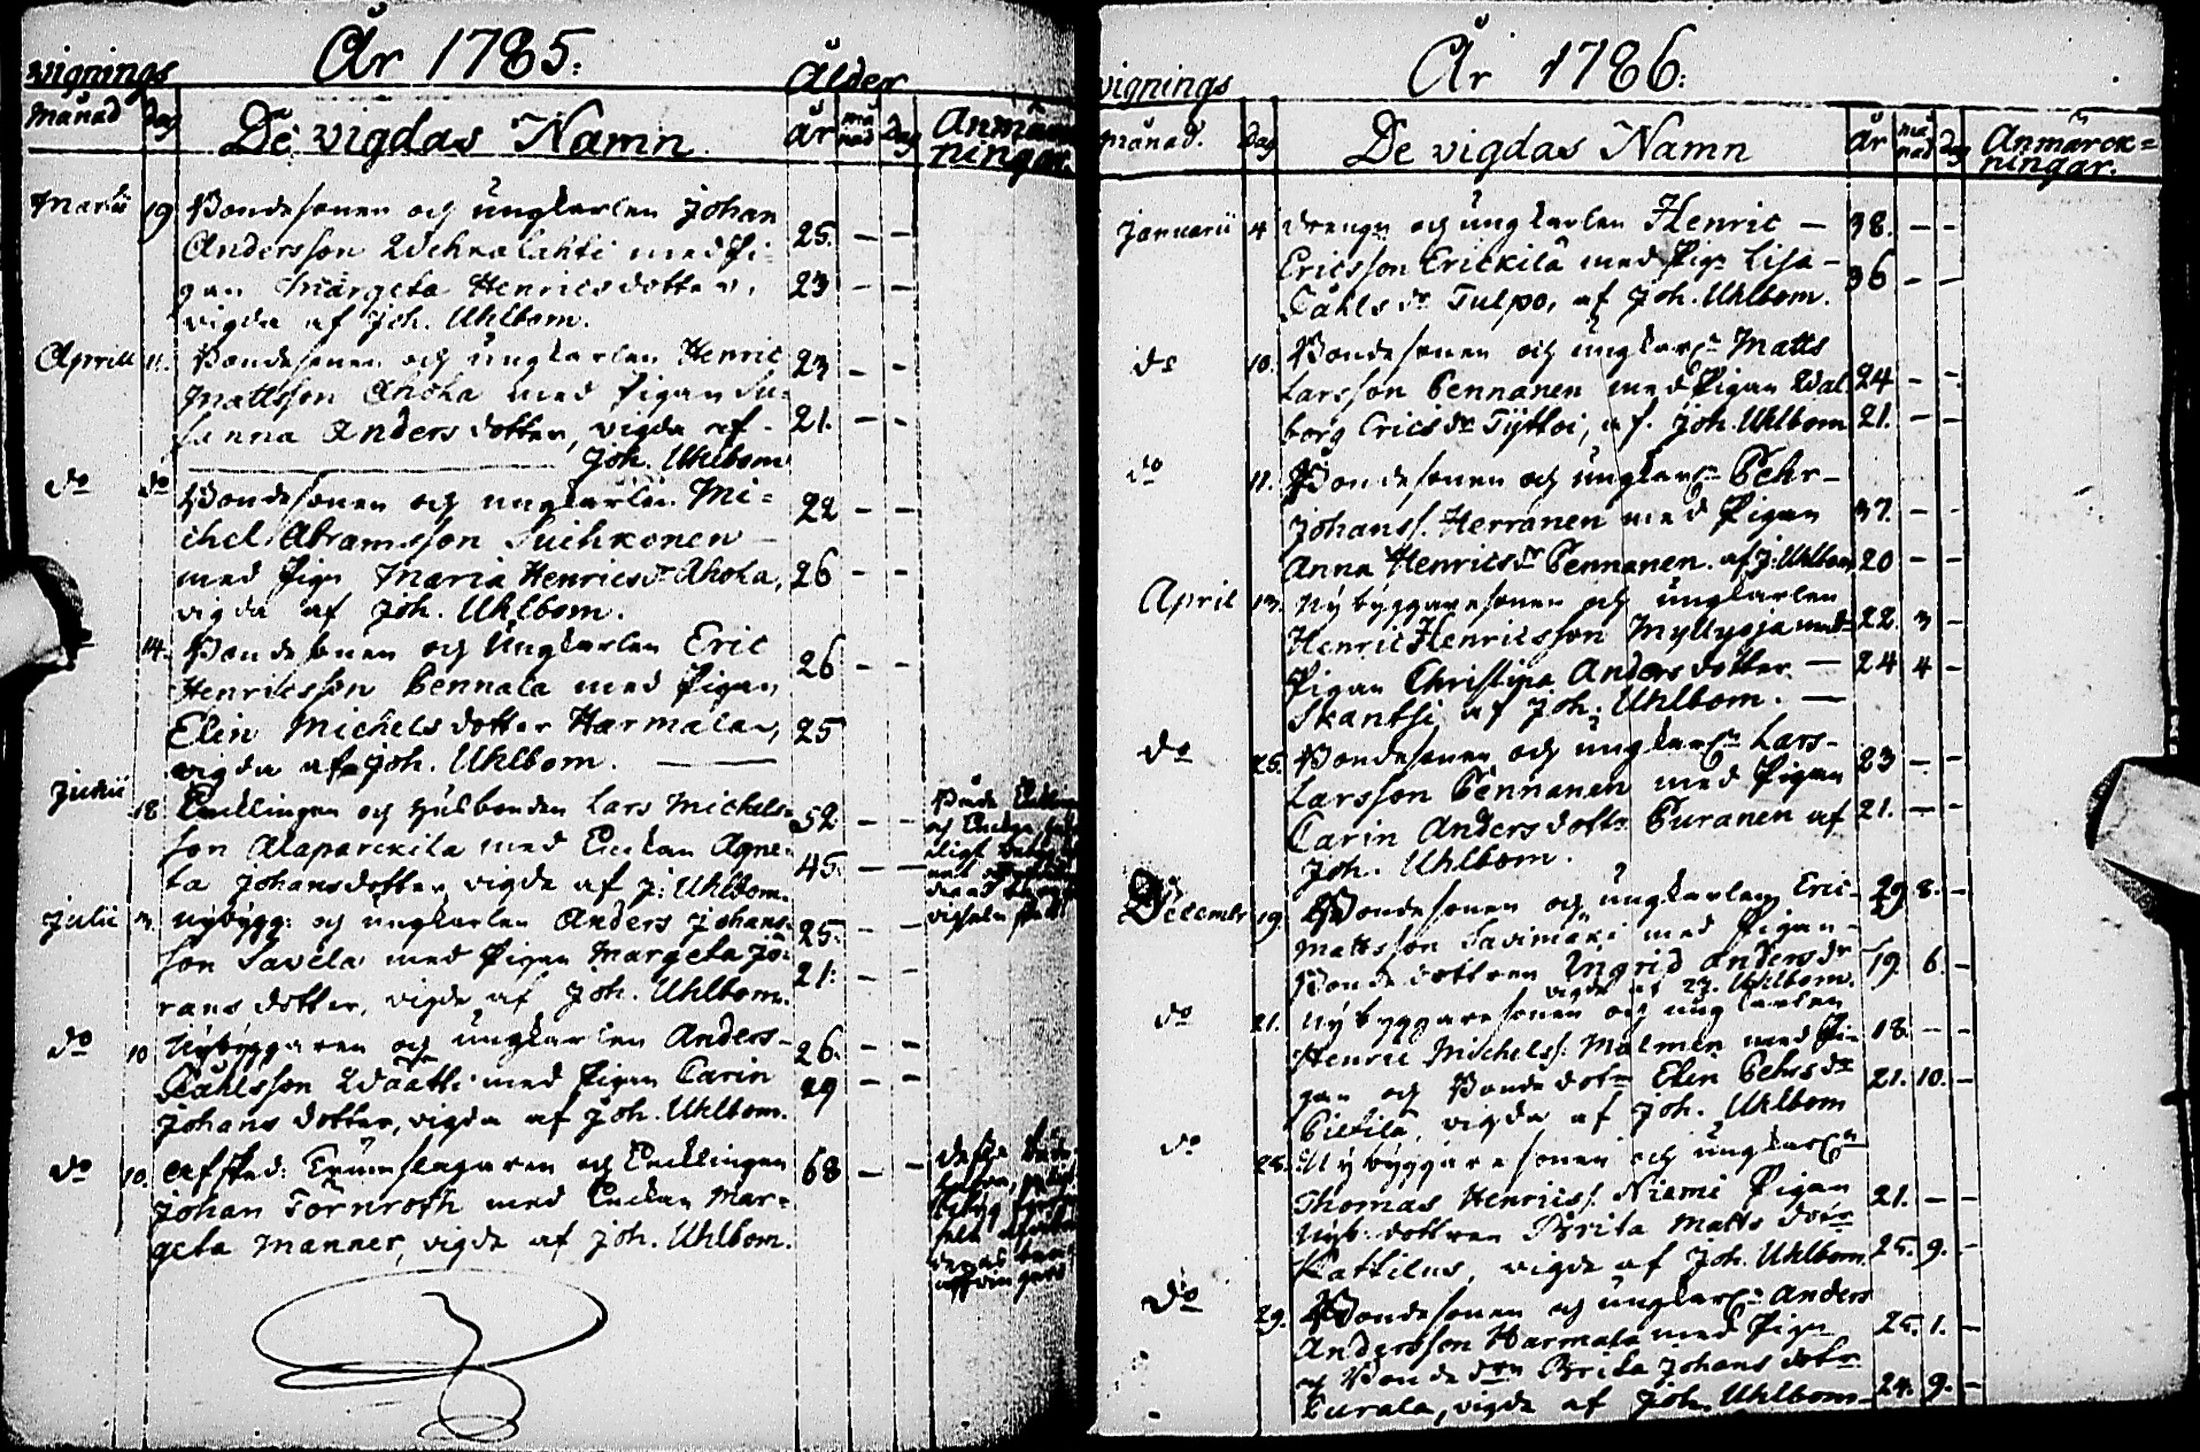 År 1785:
vignings
Ålder
månad dag De vigdas Namn. år månad dag Anmärkningar.
Martii 19 Bondesonen och ungkarlen Johan 25. — —
Andersson Wehkalahti med Pi-
gan Margeta Henricsdotter, 23 — —
vigda af Joh. Uhlbom.
Aprill 11. Bondesonen och ungkarlen Henric 23 — —
Mattsson Ahola med Pigan Su-
sanna Andersdotter, vigda af - 21. — -
Joh. Uhlbom
do do Bondesonen och ungkarlen Mi= 22 — —
chel Abramsson Suihkonen —
med Pign Maria Henricsdr Ahola, 26 — —
vigda af Joh. Uhlbom.
14. Bondesonen och Ungkarlen Eric 26 — —
Henricsson Pennala med Pigan
Elin Michelsdotter Harmala, 25
vigda af Joh. Uhlbom. — —
Junii 18 Encklingen och husbonden Lars Michels- 52 — —
son Alaparckila med Enckan Agne- 45. — —
ta Johansdotter vigda af J: Uhlbom.
Julii 3. nybygg: och ungkarlen Anders Johans- 25. — —
son Savela med Pigan Margeta Jö- 21: — —
ransdotter, vigda af Joh. Uhlbom.
do 10 Nybyggaren och ungkarlen Anders- 26. — —
Påhlsson Waatti med Pigan Carin 29 — —
Johans dotter, vigda af Joh. Uhlbom.
do 10. Afsked: Trumslagaren och Encklingen 68 — —
Johan Törnroth med Enckan Mar-
geta Manner, vigda af Joh. Uhlbom.
År 1786:
vignings
månad. Dag De vigdas Namn År månad dag Anmärck=
ningar.
Januarii 4 drengn och ungkarlen Henric — 38. — -
Ericsson Erickilä med Pign Lisa - 36 — —
Påhls dr Tulpo, af Joh. Uhlbom.
do 10. Bondesonen och ungkarln Matts
Larsson Pennanen med Pigan Wal 24 — —
borg Ericsdr Tyttoi, af. Joh. Uhlbom 21. — —
do 11. Bondesonen och ungkarln Pehr -
Johanss. Herranen med Pigan 37. — —
Anna Henricsdr Pennanen. af J: Uhlbom 20 — —
April 13. Nybyggaresonen och ungkarlen
Henric Henricsson Myllyoja med 22. 3 —
Pigan Christina Andersdotter — 24 4 —
Skantsi af Joh: Uhlbom. —
do 26. Bondesonen och ungkarln Lars- 23 — —
Larsson Pennanen med Pigan
Carin Andersdottr Puranen af 21. — —
Joh. Uhlbom.
Decembr 19. Bondesonen och ungkarlen Eric- 29 8. —
Mattsson Savimäki med Pigan -
Bondedottren Ingrid Andersdr 19. 6. —
vigde af J. Uhlbom.
do 21. Nybyggaresonen och ungkarlen
Henric Michelss: Malmen med Pi- 18. — —
gan och Bondedotn Elin Pehrsdr 21. 10. —
Pietilä, vigda af Joh. Uhlbom
do 28. Nybyggaresonen och ungkarln
Thomas Henricss. Niemi Pigan 21. — —
Nyb: dottren Brita Matts dotr
Kattilus, vigda af Joh. Uhlbom 25. 9. —
do 29. Bondesonen och ungkarln Anders
Andersson Harmala med Pign 25. 1. —
och Bonde drn Brita Johans dotr
Purala, vigda af Joh. Uhlbom - 24. 9. —